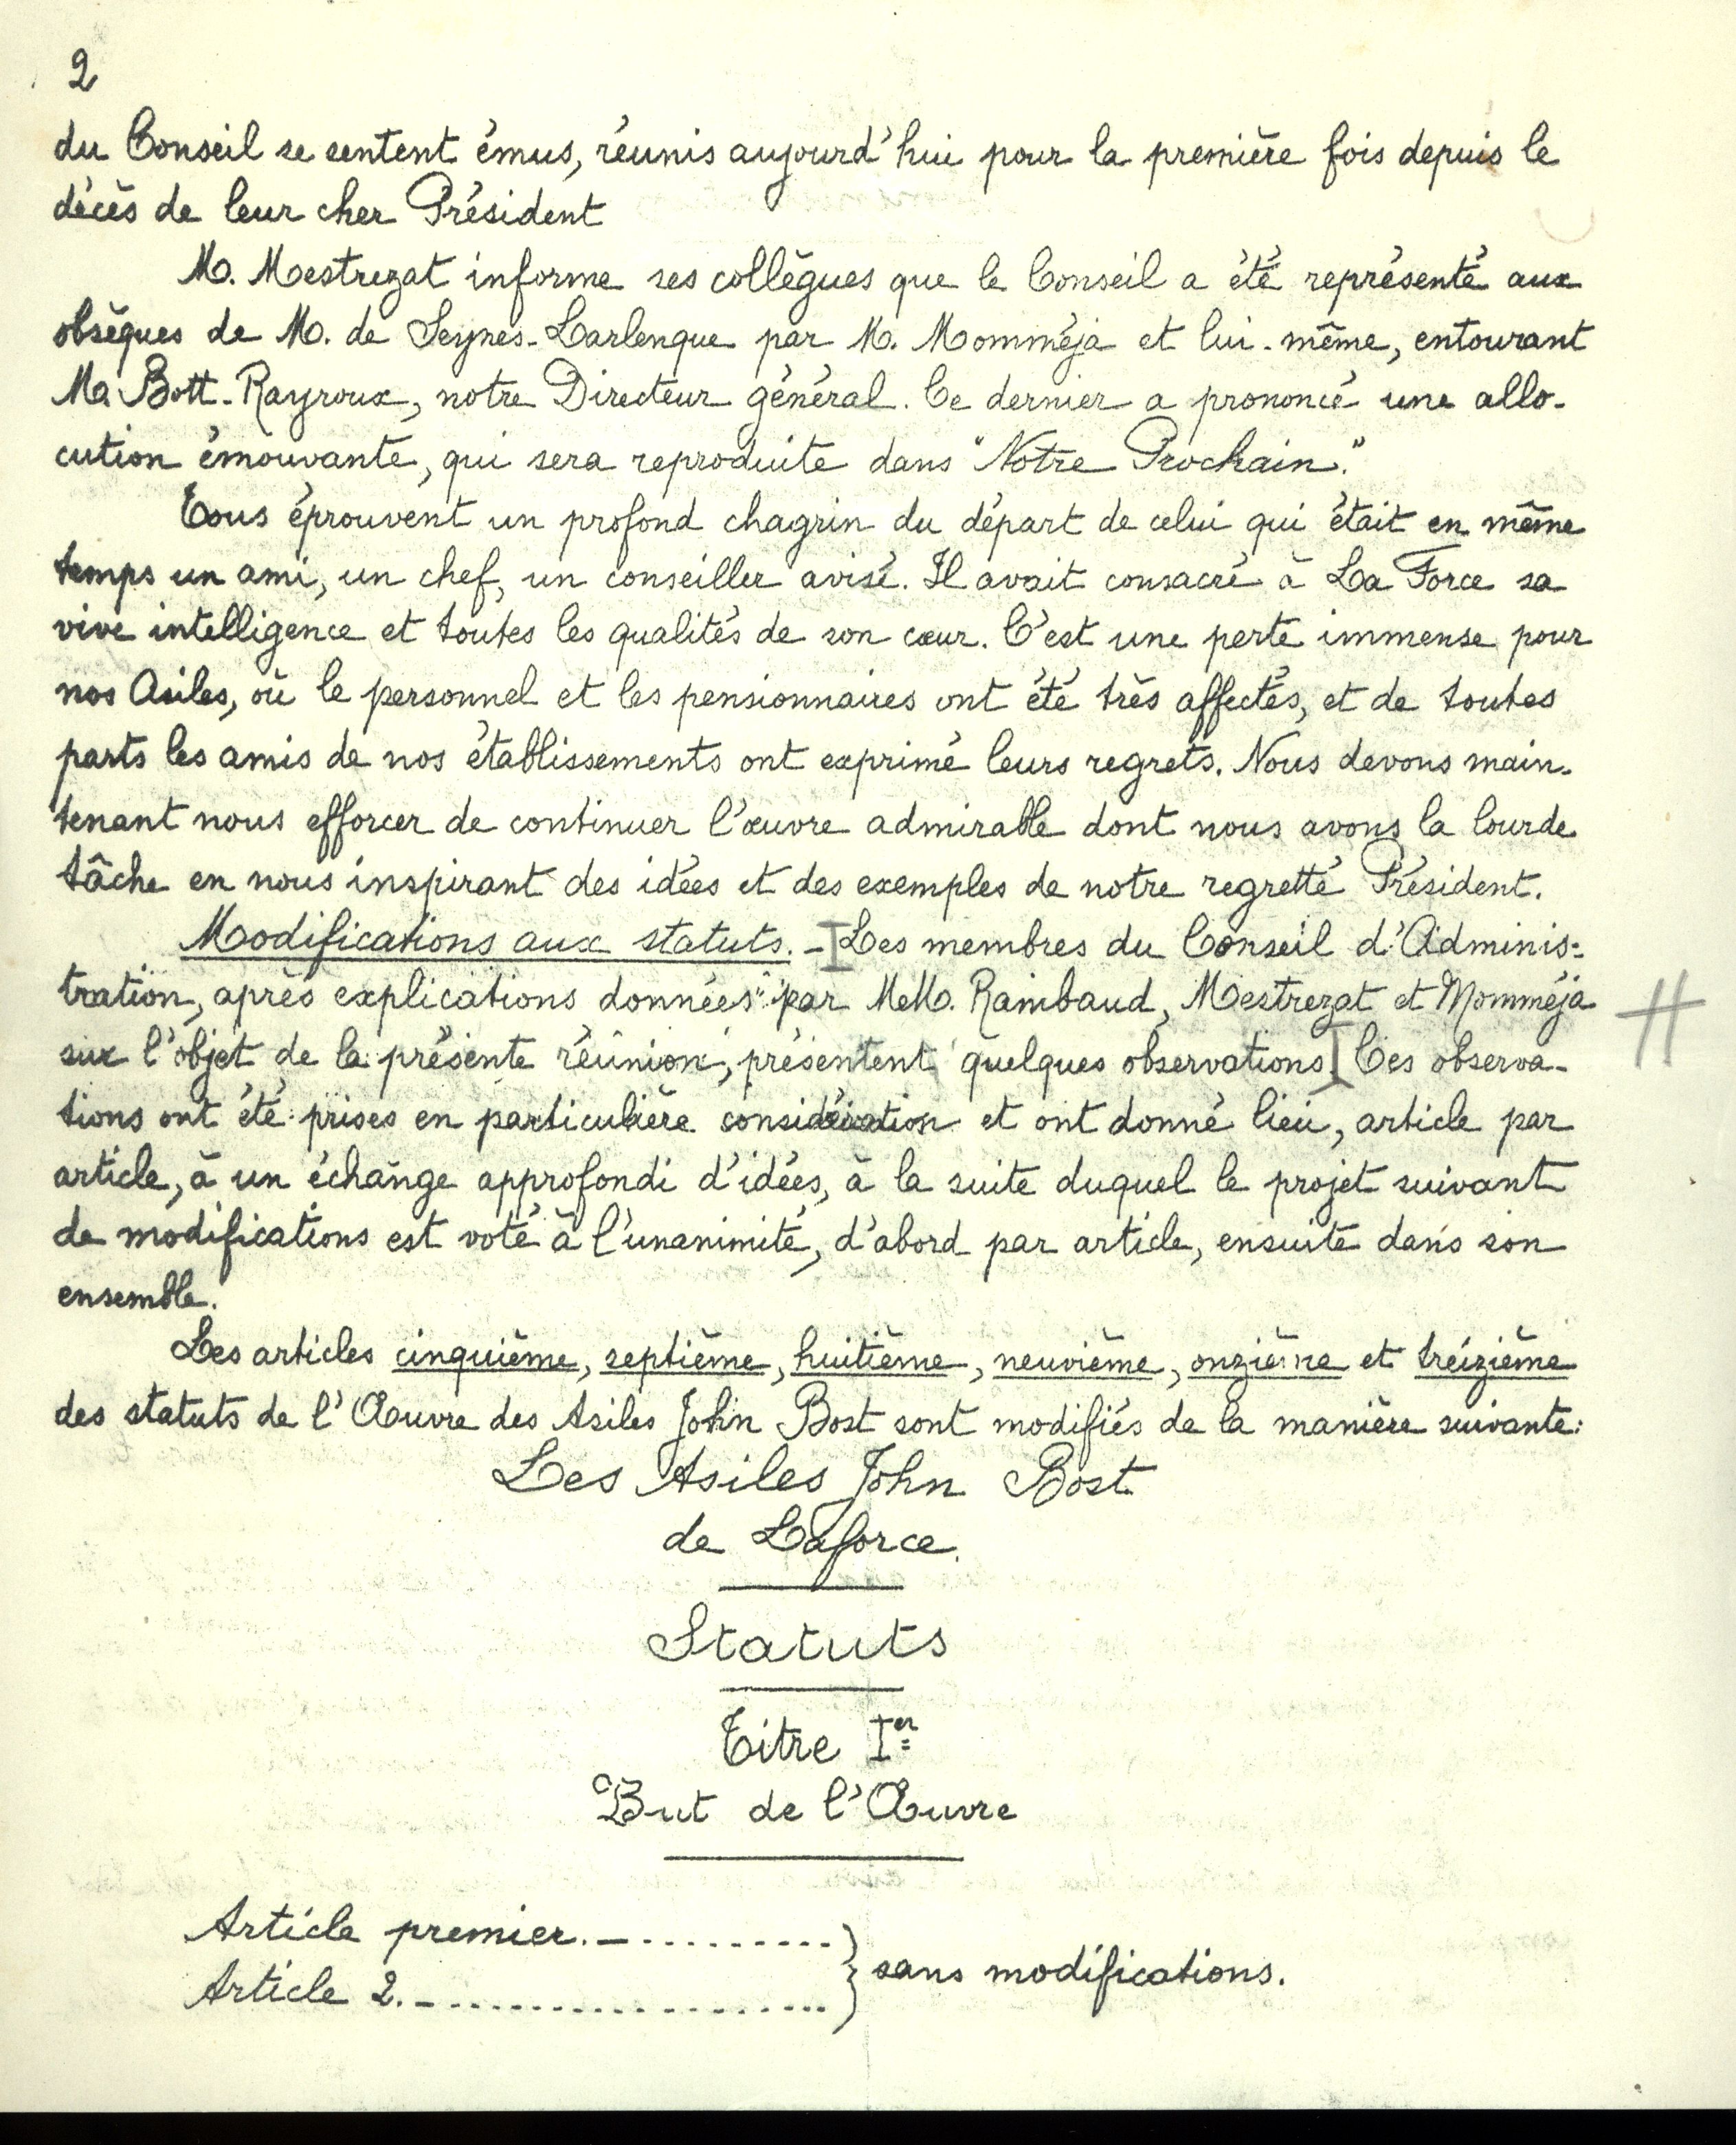 2
du Conseil se sentent émus, réunis aujourd'hui pour la première fois depuis le
décès de leur cher Président
M. Mestrezat informe ses collègues que le Conseil a été représenté aux
obsèques de M. de Seynes-Larlenque par M. Momméja et lui-même, entourant
M. Bott-Rayroux, notre Directeur général. Ce dernier a prononcé une allo-
cution émouvante, qui sera reproduite dans "Notre Prochain".
Tous éprouvent un profond chagrin du départ de celui qui était en même
temps un ami, un chef, un conseiller avisé. Il avait consacré à La Force sa
vive intelligence et toutes les qualités de son cœur. C'est une perte immense pour
nos Asiles, où le personnel et les pensionnaires ont été très affectés, et de toutes
parts les amis de nos établissements ont exprimé leurs regrets. Nous devons main-
tenant nous efforcer de continuer l'œuvre admirable dont nous avons la lourde
tâche en nous inspirant des idées et des exemples de notre regretté Président.
Modifications aux statuts. - Les membres du Conseil d'Adminis-
tration, après explications données par MM. Raimbaud, Mestrezat et Momméja
sur l'objet de la présente réunion, présentent quelques observations. Ces observa-
tions ont été prises en particulière considération et ont donné lieu, article par
article, à un échange approfondi d'idées, à la suite duquel le projet suivant
de modifications est voté à l'unanimité, d'abord par article, ensuite dans son
ensemble.
Les articles cinquième, septième, huitième, neuvième, onzième et treizième
des statuts de l'Œuvre des Asiles John Bost sont modifiés de la manière suivante:
Les Asiles John Bost
de Laforce.
Statuts
Titre Ier
But de l'Œuvre
Article premier. - ........... } sans modifications.
Article 2. - .....................